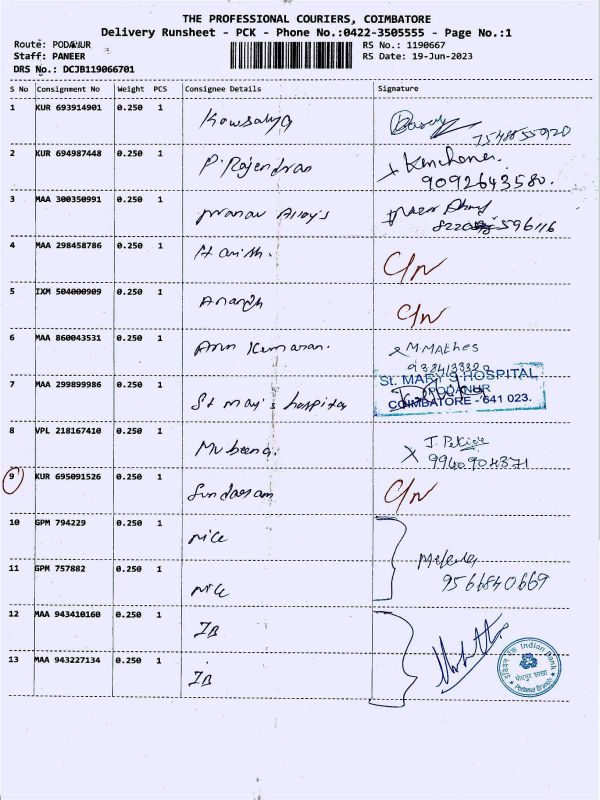 THE PROFESSIONAL COURIERS, COIMBATORE
Delivery Runsheet - PCK - Phone No.:0422-3505555 - Page No.:1
Route: PODANUR
RS No.: 1190667
Staff: PANEER
RS Date: 19-Jun-2023
DRS No.: DCJB119066701
S No Consignment No Weight PCS Consignee Details Signature
1 KUR 693914901 0.250 1 Kowsalya 7548855920
2 KUR 694987448 0.250 1 P. Rajendran 9092643580.
3 MAA 300350991 0.250 1 pranav Alloy's 596116
4 MAA 298458786 0.250 1 Harish. C/N
5 IXM 504000909 0.250 1 Anandh C/N
6 MAA 860043531 0.250 1 Arun Kumaran. M. MATHES
7 MAA 299899986 0.250 1 St mary's hospital
St. MARY'S HOSPITAL
PODANUR
COIMBATORE - 641 023.
8 VPL 218167410 0.250 1 Mubeena. X J.
9940904371
9 KUR 695091526 0.250 1 Sundaram C/N
10 GPM 794229 0.250 1 NICE
11 GPM 757882 0.250 1 NICE 9566840669
12 MAA 943410160 0.250 1 IB
13 MAA 943227134 0.250 1 IB
Indian Bank
Podanur Branch